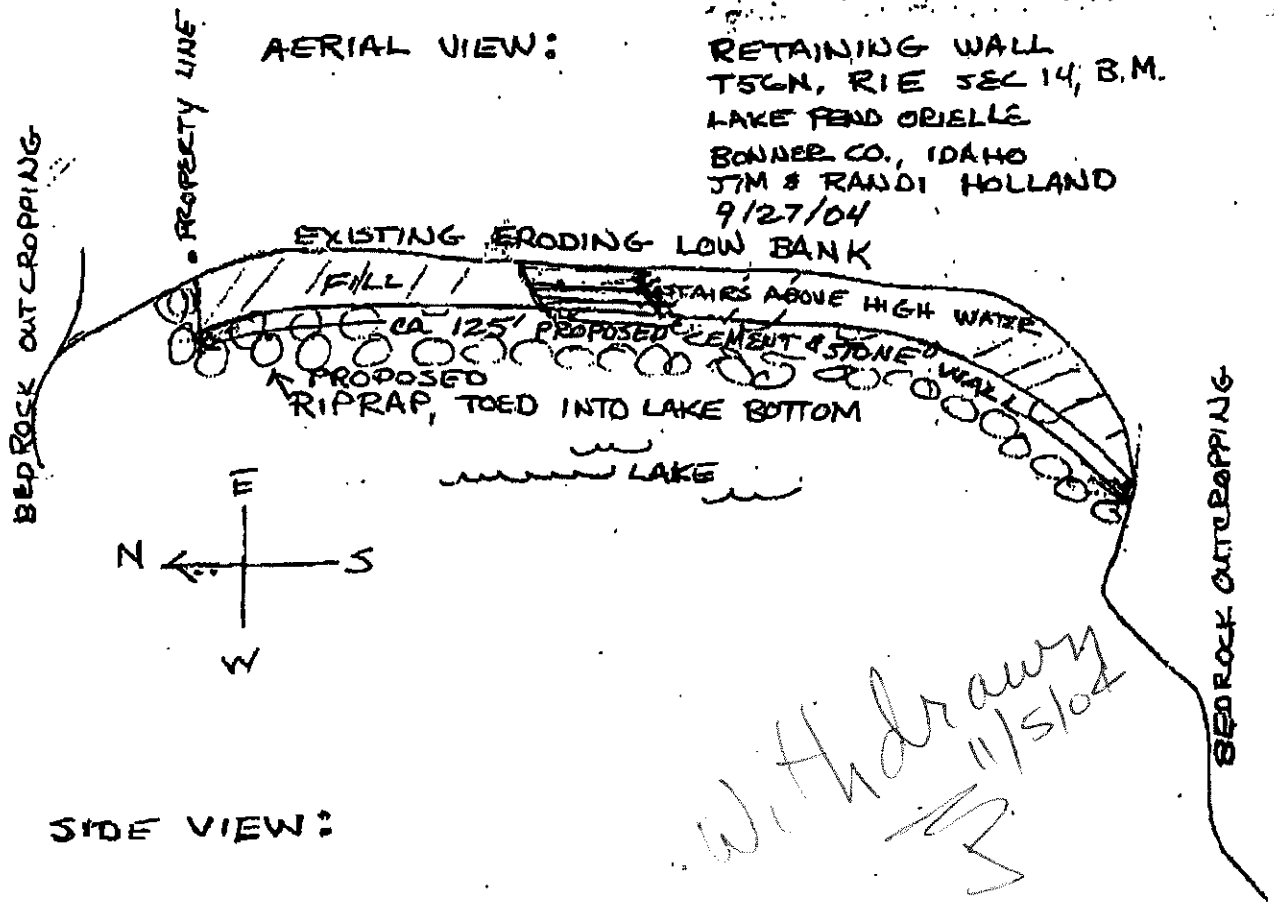 AERIAL VIEW:
RETAINING WALL
T56N, R1E SEC 14, B.M.
LAKE PEND ORIELLE
BONNER CO., IDAHO
JIM & RANDI HOLLAND
9/27/04
BEDROCK OUTCROPPING
PROPERTY LINE
EXISTING ERODING LOW BANK
FILL
STAIRS ABOVE HIGH WATER
CA 125' PROPOSED CEMENT & STONE WALL
PROPOSED
RIPRAP, TOED INTO LAKE BOTTOM
LAKE
E
N
S
W
BEDROCK OUTCROPPING
Withdrawn
11/5/04
SIDE VIEW: